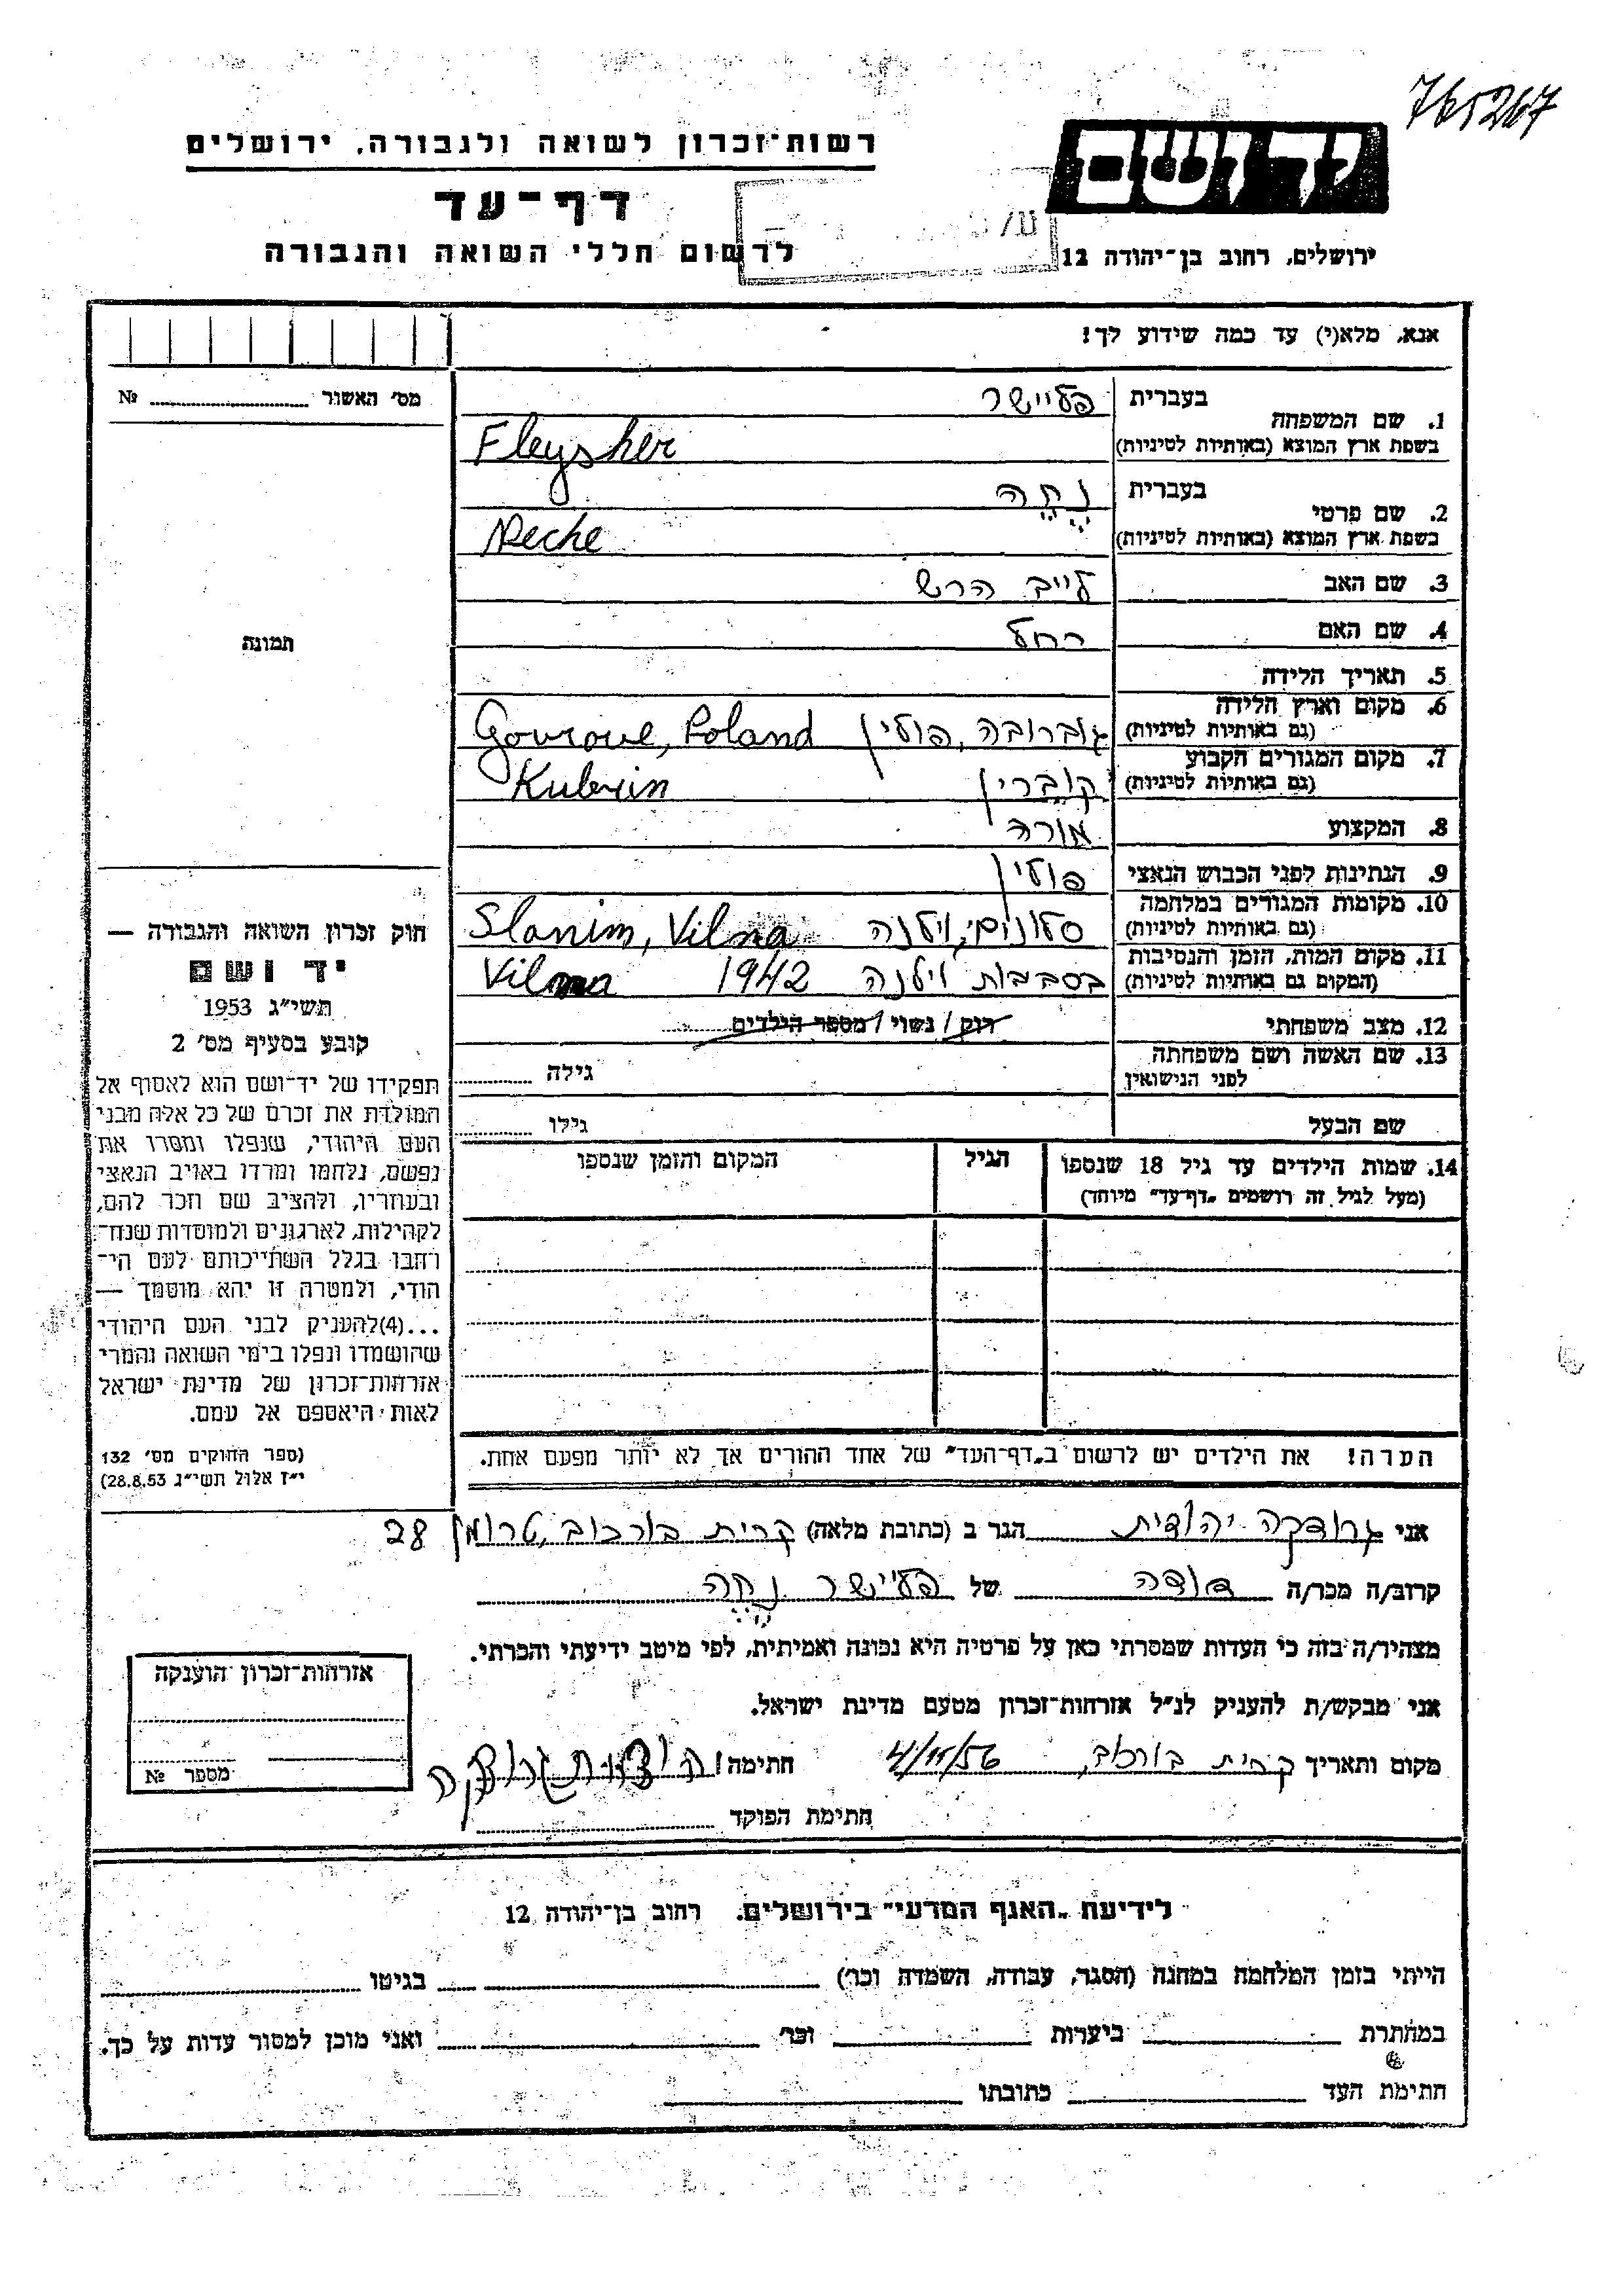 765267
יד ושם
רשות־זכרון לשואה ולגבורה, ירושלים
דף־עד
לרשום חללי השואה והגבורה
ירושלים, רחוב בן־יהודה 12
אנא, מלא(י) עד כמה שידוע לך!
מס' האשור № 
1. שם המשפחה בעברית פליישר
בשפת ארץ המוצא (באותיות לטיניות) Fleysher
2. שם פרטי בעברית נֶחֶה
בשפת ארץ המוצא (באותיות לטיניות) Neche
3. שם האב לייב הרש
4. שם האם רחל
תמונה
5. תאריך הלידה
6. מקום וארץ הלידה גוברובה, פולין Govrove, Poland
(גם באותיות לטיניות)
7. מקום המגורים הקבוע קוברין Kubrin
(גם באותיות לטיניות)
8. המקצוע מורה
9. הנתינות לפני הכבוש הנאצי פולין
10. מקומות המגורים במלחמה סלונים, וילנה Slonim, Vilna
(גם באותיות לטיניות)
11. מקום המות, הזמן והנסיבות בסביבות וילנה 1942 Vilna
(המקום גם באותיות לטיניות)
12. מצב משפחתי רוק / נשוי / מספר הילדים
13. שם האשה ושם משפחתה גילה
לפני הנישואין
שם הבעל גילו
14. שמות הילדים עד גיל 18 שנספו הגיל המקום והזמן שנספו
(מעל לגיל זה רושמים „דף־עד" מיוחד)
הערה! את הילדים יש לרשום ב„דף־העד" של אחד ההורים אך לא יותר מפעם אחת.
חוק זכרון השואה והגבורה —
יד ושם
תשי"ג 1953
קובע בסעיף מס' 2
תפקידו של יד־ושם הוא לאסוף אל
המולדת את זכרם של כל אלה מבני
העם היהודי, שנפלו ומסרו את
נפשם, נלחמו ומרדו באויב הנאצי
ובעוזריו, ולהציב שם וזכר להם,
לקהילות, לארגונים ולמוסדות שנח־
רבו בגלל השתייכותם לעם הי־
הודי, ולמטרה זו יהא מוסמך —
...(4)להעניק לבני העם היהודי
שהושמדו ונפלו בימי השואה והמרי
אזרחות־זכרון של מדינת ישראל
לאות היאספם אל עמם.
(ספר החוקים מס' 132
י"ז אלול תשי"ג 28.8.53)
אני גרודקה יהודית הגר ב (כתובת מלאה) קרית בורכוב, טרומן 28
קרוב/ה מכר/ה דודה של פליישר נֶחֶה
מצהיר/ה בזה כי העדות שמסרתי כאן על פרטיה היא נכונה ואמיתית, לפי מיטב ידיעתי והכרתי.
אני מבקש/ת להעניק לנ"ל אזרחות־זכרון מטעם מדינת ישראל.
מקום ותאריך קרית בורכוב, 4/11/56 חתימה יהודית גרודקה
חתימת הפוקד
אזרחות־זכרון הוענקה
מספר №
לידיעת „האגף המדעי" בירושלים. רחוב בן־יהודה 12
הייתי בזמן המלחמה במחנה (הסגר, עבודה, השמדה וכו') בגיטו
במחתרת ביערות וכו' ואני מוכן למסור עדות על כך.
חתימת העד כתובתו